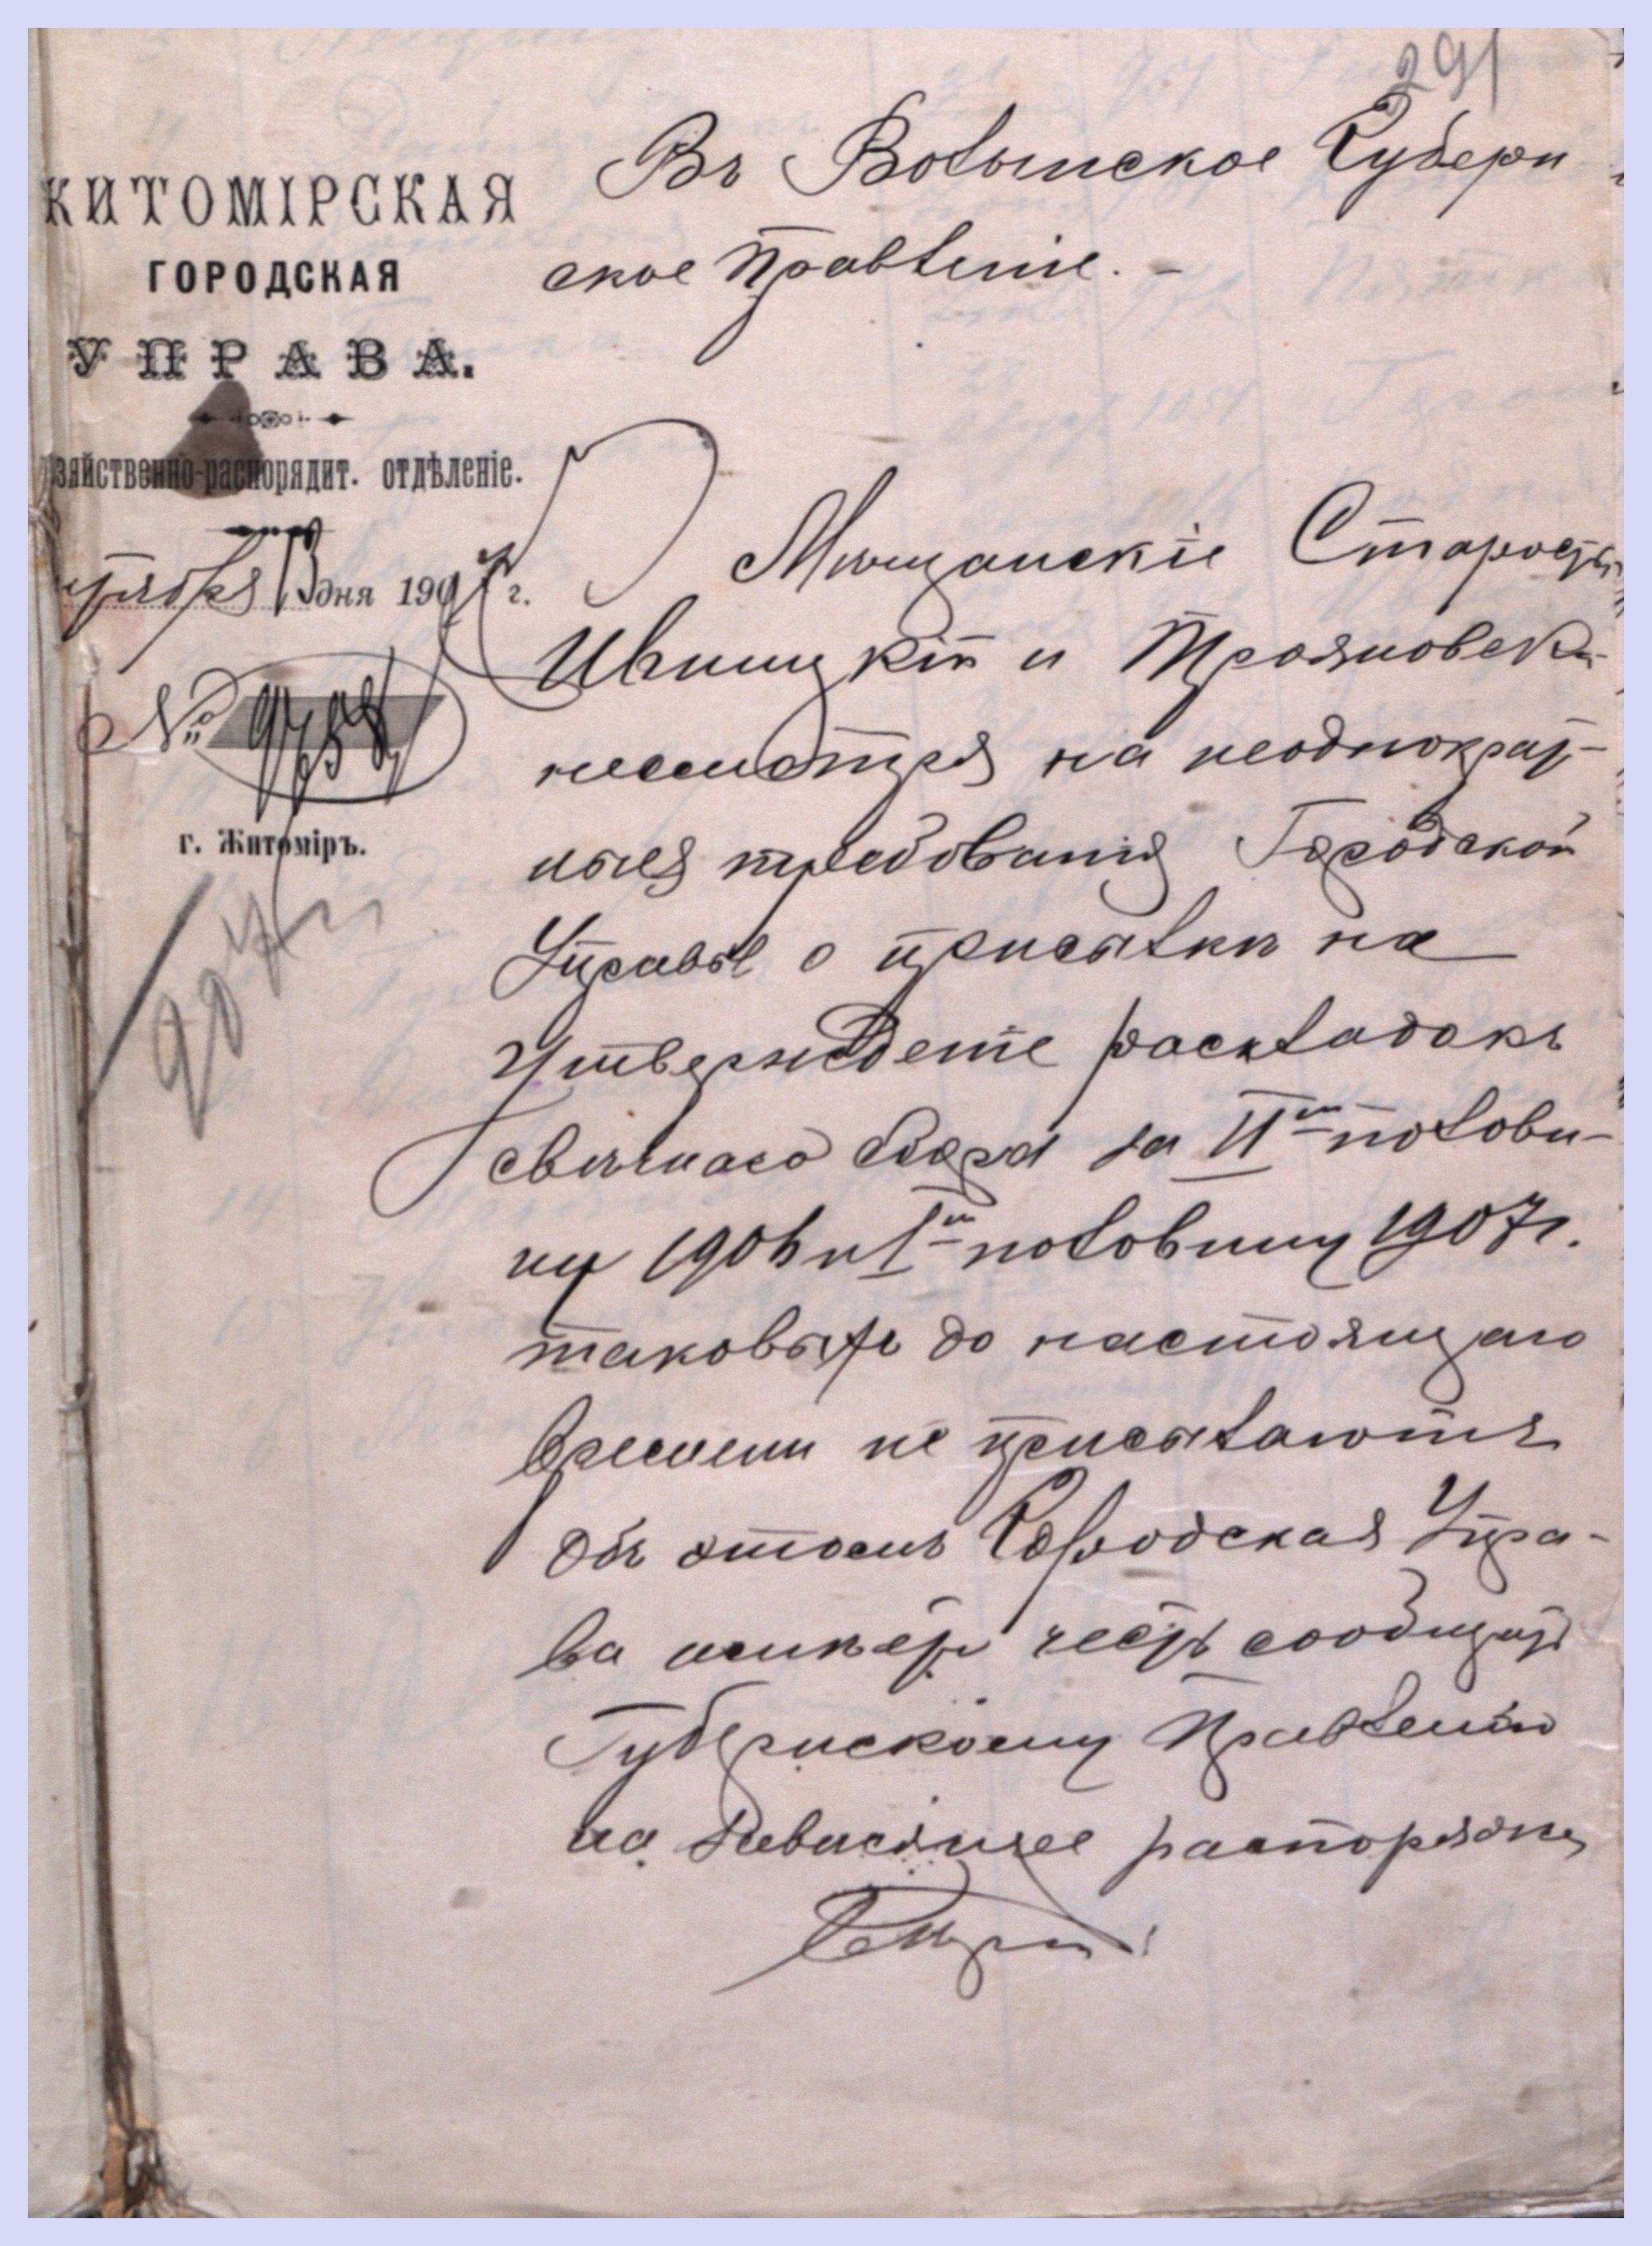 291
ЖИТОМІРСКАЯ
ГОРОДСКАЯ
УПРАВА.
зяйственно-распорядит. отдѣленіе.
13 дня 1907 г.
№ 9758
г. Житоміръ.
Въ Волынское Губерн
ское Правленіе. -
Мѣщанскіе Старосты
Ивницкій и Трояновскі-
несмотря на неоднократ-
ныя требованія Городской
Управы о присылкѣ на
утвержденіе раскладокъ
свѣчнаго сбора за IIю полови-
ну 1906 и Iю половину 1907 г.
таковыхъ до настоящаго
времени не присылаютъ
Объ этомъ Городская Упра-
ва имѣетъ честь сообщить
Губернскому Правленію
на зависящее распоряже